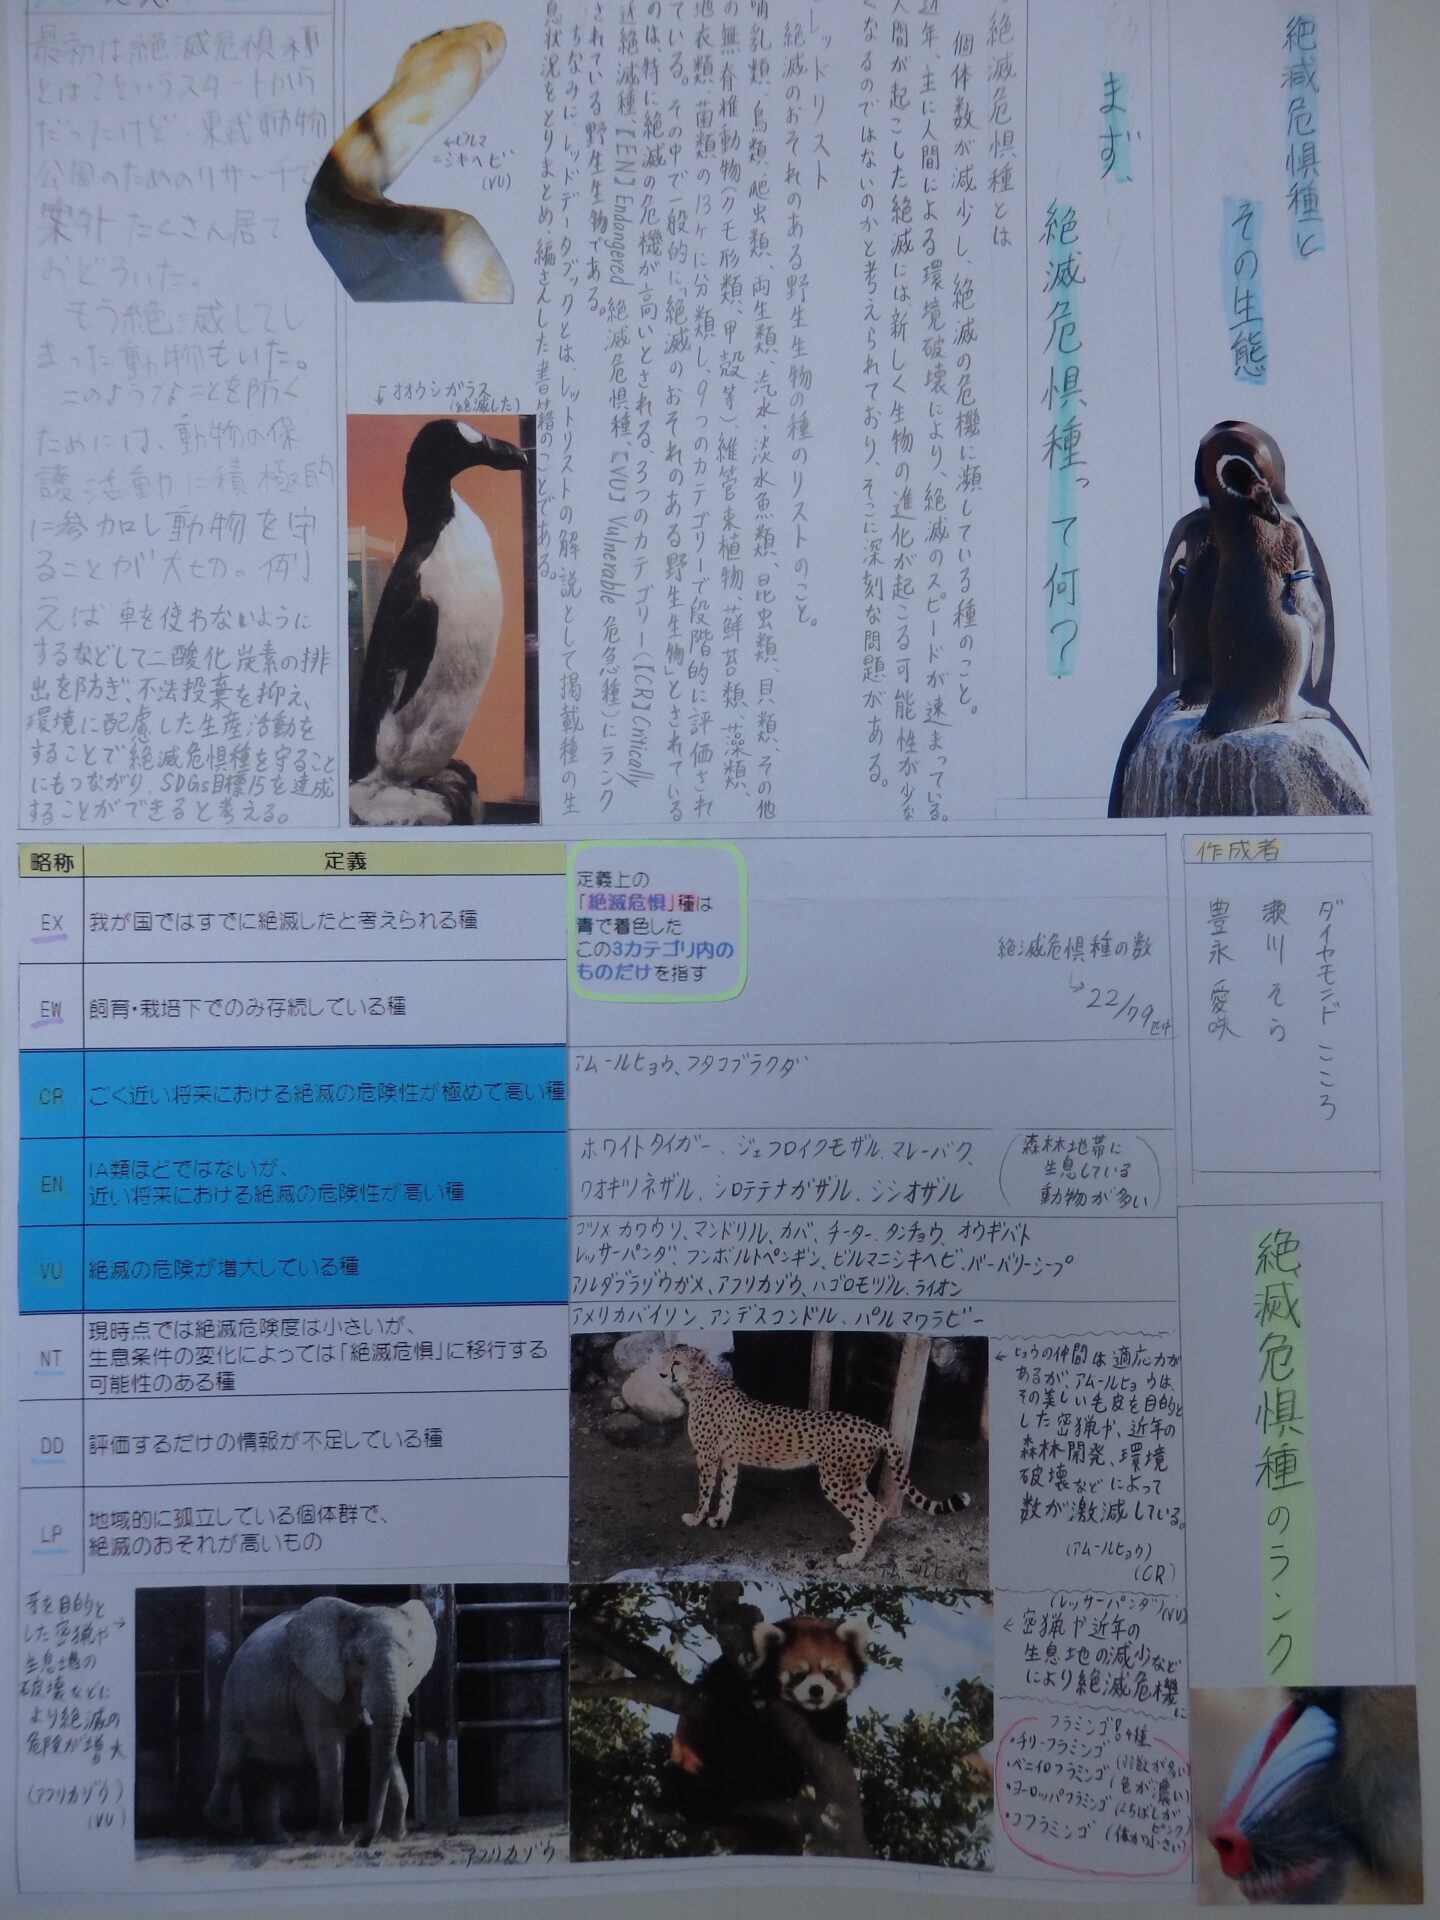 絶滅危惧種と
その生態
まず、
絶滅危惧種って何？
絶滅危惧種とは
個体数が減少し、絶滅の危機に瀕している種のこと。
近年、主に人間による環境破壊により、絶滅のスピードが速まっている。
人間が起こした絶滅には新しく生物の進化が起こる可能性が少な
くなるのではないのかと考えられており、そこに深刻な問題がある。
レッドリスト
絶滅のおそれのある野生生物の種のリストのこと。
哺乳類、鳥類、爬虫類、両生類、汽水・淡水魚類、昆虫類、貝類、その他
の無脊椎動物(クモ形類、甲殻等)、維管束植物、蘚苔類、藻類、
地衣類、菌類の13ケに分類し、9つのカテゴリーで段階的に評価され
ている。その中で一般的に「絶滅のおそれのある野生生物」とされている
のは、特に絶滅の危機が高いとされる、3つのカテゴリー(【CR】Critically
近絶滅種、【EN】Endangered 絶滅危惧種、【VU】Vulnerable 危急種)にランク
されている野生生物である。
ちなみに、レッドデータブックとは、レットリストの解説として掲載種の生
息状況をとりまとめ、編さんした書籍のことである。
←ビルマ
ニシキヘビ
(VU)
↓オオウミガラス
(絶滅した)
最初は絶滅危惧種
とは？というスタートから
だったけど、東武動物
公園のためのリサーチで
案外たくさん居て
おどろいた。
もう絶滅してし
まった動物もいた。
このようなことを防ぐ
ためには、動物の保
護活動に積極的
に参加し動物を守
ることが大切。例
えば車を使わないように
するなどして二酸化炭素の排
出を防ぎ、不法投棄を抑え、
環境に配慮した生産活動を
することで絶滅危惧種を守ること
にもつながり、SDGs目標15を達成
することができると考える。
作成者
ダイヤモンド こころ
瀬川 そら
豊永 愛咲
略称 定義
EX 我が国ではすでに絶滅したと考えられる種
EW 飼育・栽培下でのみ存続している種
CR ごく近い将来における絶滅の危険性が極めて高い種
EN IA類ほどではないが、
近い将来における絶滅の危険性が高い種
VU 絶滅の危険が増大している種
NT 現時点では絶滅危険度は小さいが、
生息条件の変化によっては「絶滅危惧」に移行する
可能性のある種
DD 評価するだけの情報が不足している種
LP 地域的に孤立している個体群で、
絶滅のおそれが高いもの
定義上の
「絶滅危惧」種は
青で着色した
この3カテゴリ内の
ものだけを指す
絶滅危惧種の数
↳22/79匹中
アムールヒョウ、フタコブラクダ
ホワイトタイガー、ジェフロイクモザル、マレーバク、
ワオキツネザル、シロテテナガザル、シシオザル
(森林地帯に
生息している
動物が多い)
コツメカワウソ、マンドリル、カバ、チーター、タンチョウ、オウギバト
レッサーパンダ、フンボルトペンギン、ビルマニシキヘビ、バーバリーシープ
アルダブラゾウガメ、アフリカゾウ、ハゴロモヅル、ライオン
アメリカバイソン、アンデスコンドル、パルマワラビー
←ヒョウの仲間は適応力が
あるが、アムールヒョウは、
その美しい毛皮を目的と
した密猟や、近年の
森林開発、環境
破壊などによって
数が激減している。
(アムールヒョウ)
(CR)
アムールヒョウ
(レッサーパンダ)(VU)
←密猟や近年の
生息地の減少など
により絶滅危機に
フラミンゴ:4種
・チリーフラミンゴ(羽数が多い)
・ベニイロフラミンゴ(色が濃い)
・ヨーロッパフラミンゴ(くちばしがピンク)
・コフラミンゴ(体が小さい)
牙を目的と→
した密猟や
生息地の
破壊などに
より絶滅の
危険が増大
(アフリカゾウ)
(VU)
アフリカゾウ
絶滅危惧種のランク